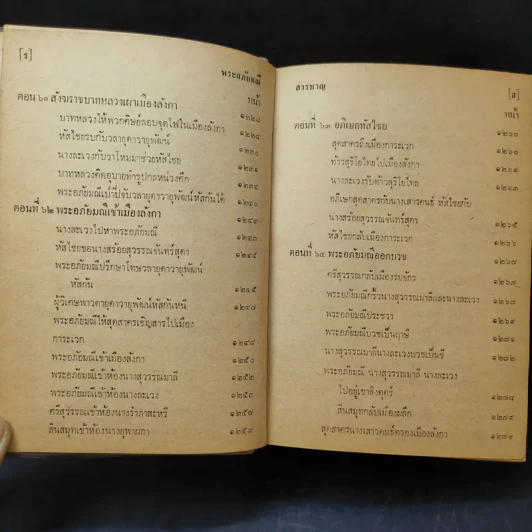 [ร]
พระอภัยมณี
หน้า
ตอน ๖๑ สังฆราชบาทหลวงเผาเมืองลังกา ๑๒๒๘
บาทหลวงให้พวกศิษย์ลอบจุดไฟในเมืองลังกา ๑๒๒๘
หัสไชยรบกับวลายุดาวายุพัฒน์ ๑๒๓๐
นางละเวงกับวาโหมมาช่วยหัสไชย ๑๒๓๑
บาทหลวงคิดอุบายทำรูปกกหน่วงศึก ๑๒๓๔
พระอภัยมณีเป่าปี่จับวลายุดาวายุพัฒน์หัสกันได้ ๑๒๔๐
ตอนที่ ๖๒ พระอภัยมณีเข้าเมืองลังกา ๑๒๔๓
นางละเวงไปหาพระอภัยมณี ๑๒๔๓
หัสไชยขอนางสร้อยสุวรรณจันทร์สุดา ๑๒๔๔
พระอภัยมณีปรึกษาโทษวลายุดาวายุพัฒน์
หัสกัน ๑๒๔๕
ผู้วิเศษพาวายุดาวายุพัฒน์หัสกันหนี ๑๒๔๗
พระอภัยมณีให้สุดสาครเชิญสารไปเมือง
การะเวก ๑๒๔๘
พระอภัยมณีเข้าเมืองลังกา ๑๒๕๐
พระอภัยมณีเข้าห้องนางสุวรรณมาลี ๑๒๕๑
พระอภัยมณีเข้าห้องนางละเวง ๑๒๕๓
ศรีสุวรรณเข้าห้องนางรำภาสะหรี ๑๒๕๗
สินสมุทเข้าห้องนางยุพาผกา ๑๒๕๘
สารบาญ
[ล]
หน้า
ตอนที่ ๖๓ อภิเษกหัสไชย ๑๒๖๐
สุดสาครถึงเมืองการะเวก ๑๒๖๐
ท้าวสุริโยไทยไปเมืองลังกา ๑๒๖๑
นางละเวงรับท้าวสุริโยไทย ๑๒๖๒
อภิเษกสุดสาครกับนางเสาวคนธ์ หัสไชยกับ
นางสร้อยสุวรรณจันทร์สุดา ๑๒๖๕
หัสไชยกลับเมืองการะเวก ๑๒๖๖
ตอนที่ ๖๔ พระอภัยมณีออกบวช
ศรีสุวรรณกลับเมืองรมจักร
พระอภัยมณีกริ้วนางสุวรรณมาลีและนางละเวง
พระอภัยมณีประชวร
พระอภัยมณีบวชเป็นฤๅษี
นางสุวรรณมาลีนางละเวงบวชเป็นชี ๑๒๗๒
พระอภัยมณี นางสุวรรณมาลี นางละเวง
ไปอยู่เขาสิงคุตร์ ๑๒๗๘
สินสมุทกลับเมืองผลึก ๑๒๗๘
สุดสาครนางเสาวคนธ์ครองเมืองลังกา ๑๒๗๙